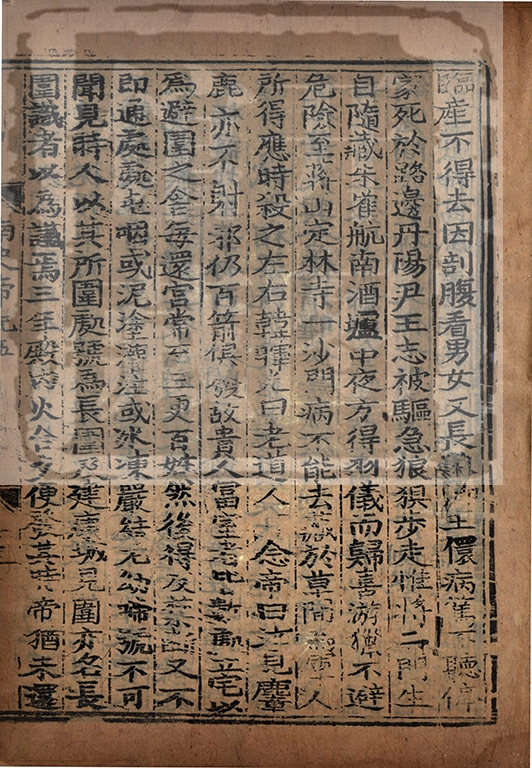 臨產不得去因剖腹看男女又長秋卿王儇病篤不聽停
家死於路邊丹陽尹王志被驅急狼狽步走惟將二門生
自隨藏朱雀航南酒壚中夜方得羽儀而歸喜游獵不避
危險至蔣山定林寺一沙門病不能去藏於草間為軍人
所得應時殺之左右韓暉光曰老道人可念帝曰汝見麞
鹿亦不射邪仍百箭俱發故貴人富室者皆數處立宅以
為避圍之舍每還宮常至三更百姓然後得反禁斷又不
即通處處屯咽或泥塗灌注或冰凍嚴結老幼啼號不可
聞見時人以其所圍處號為長圍及建康城見圍亦名長
圍識者以為讖焉三年殿內火合夕便發其時帝猶未還
南史帝紀五